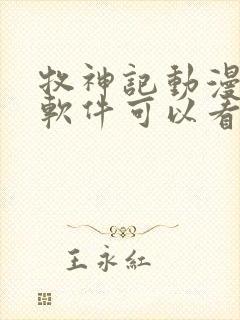 牧神記動漫
軟件可以看
王永紅